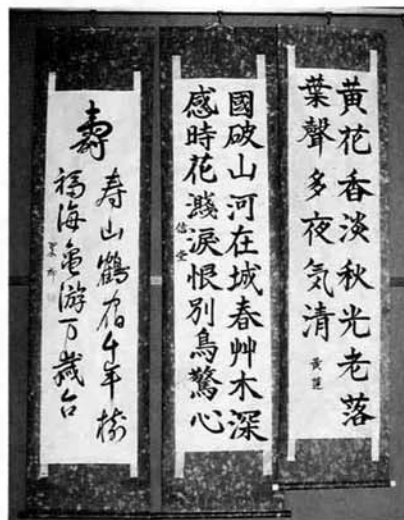 黄花香淡秋光老落
葉聲多夜気清
黄蓮
國破山河在城春艸木深
感時花濺淚恨別鳥驚心
信堂
壽
寿山鶴宿千年樹
福海亀游万歳台